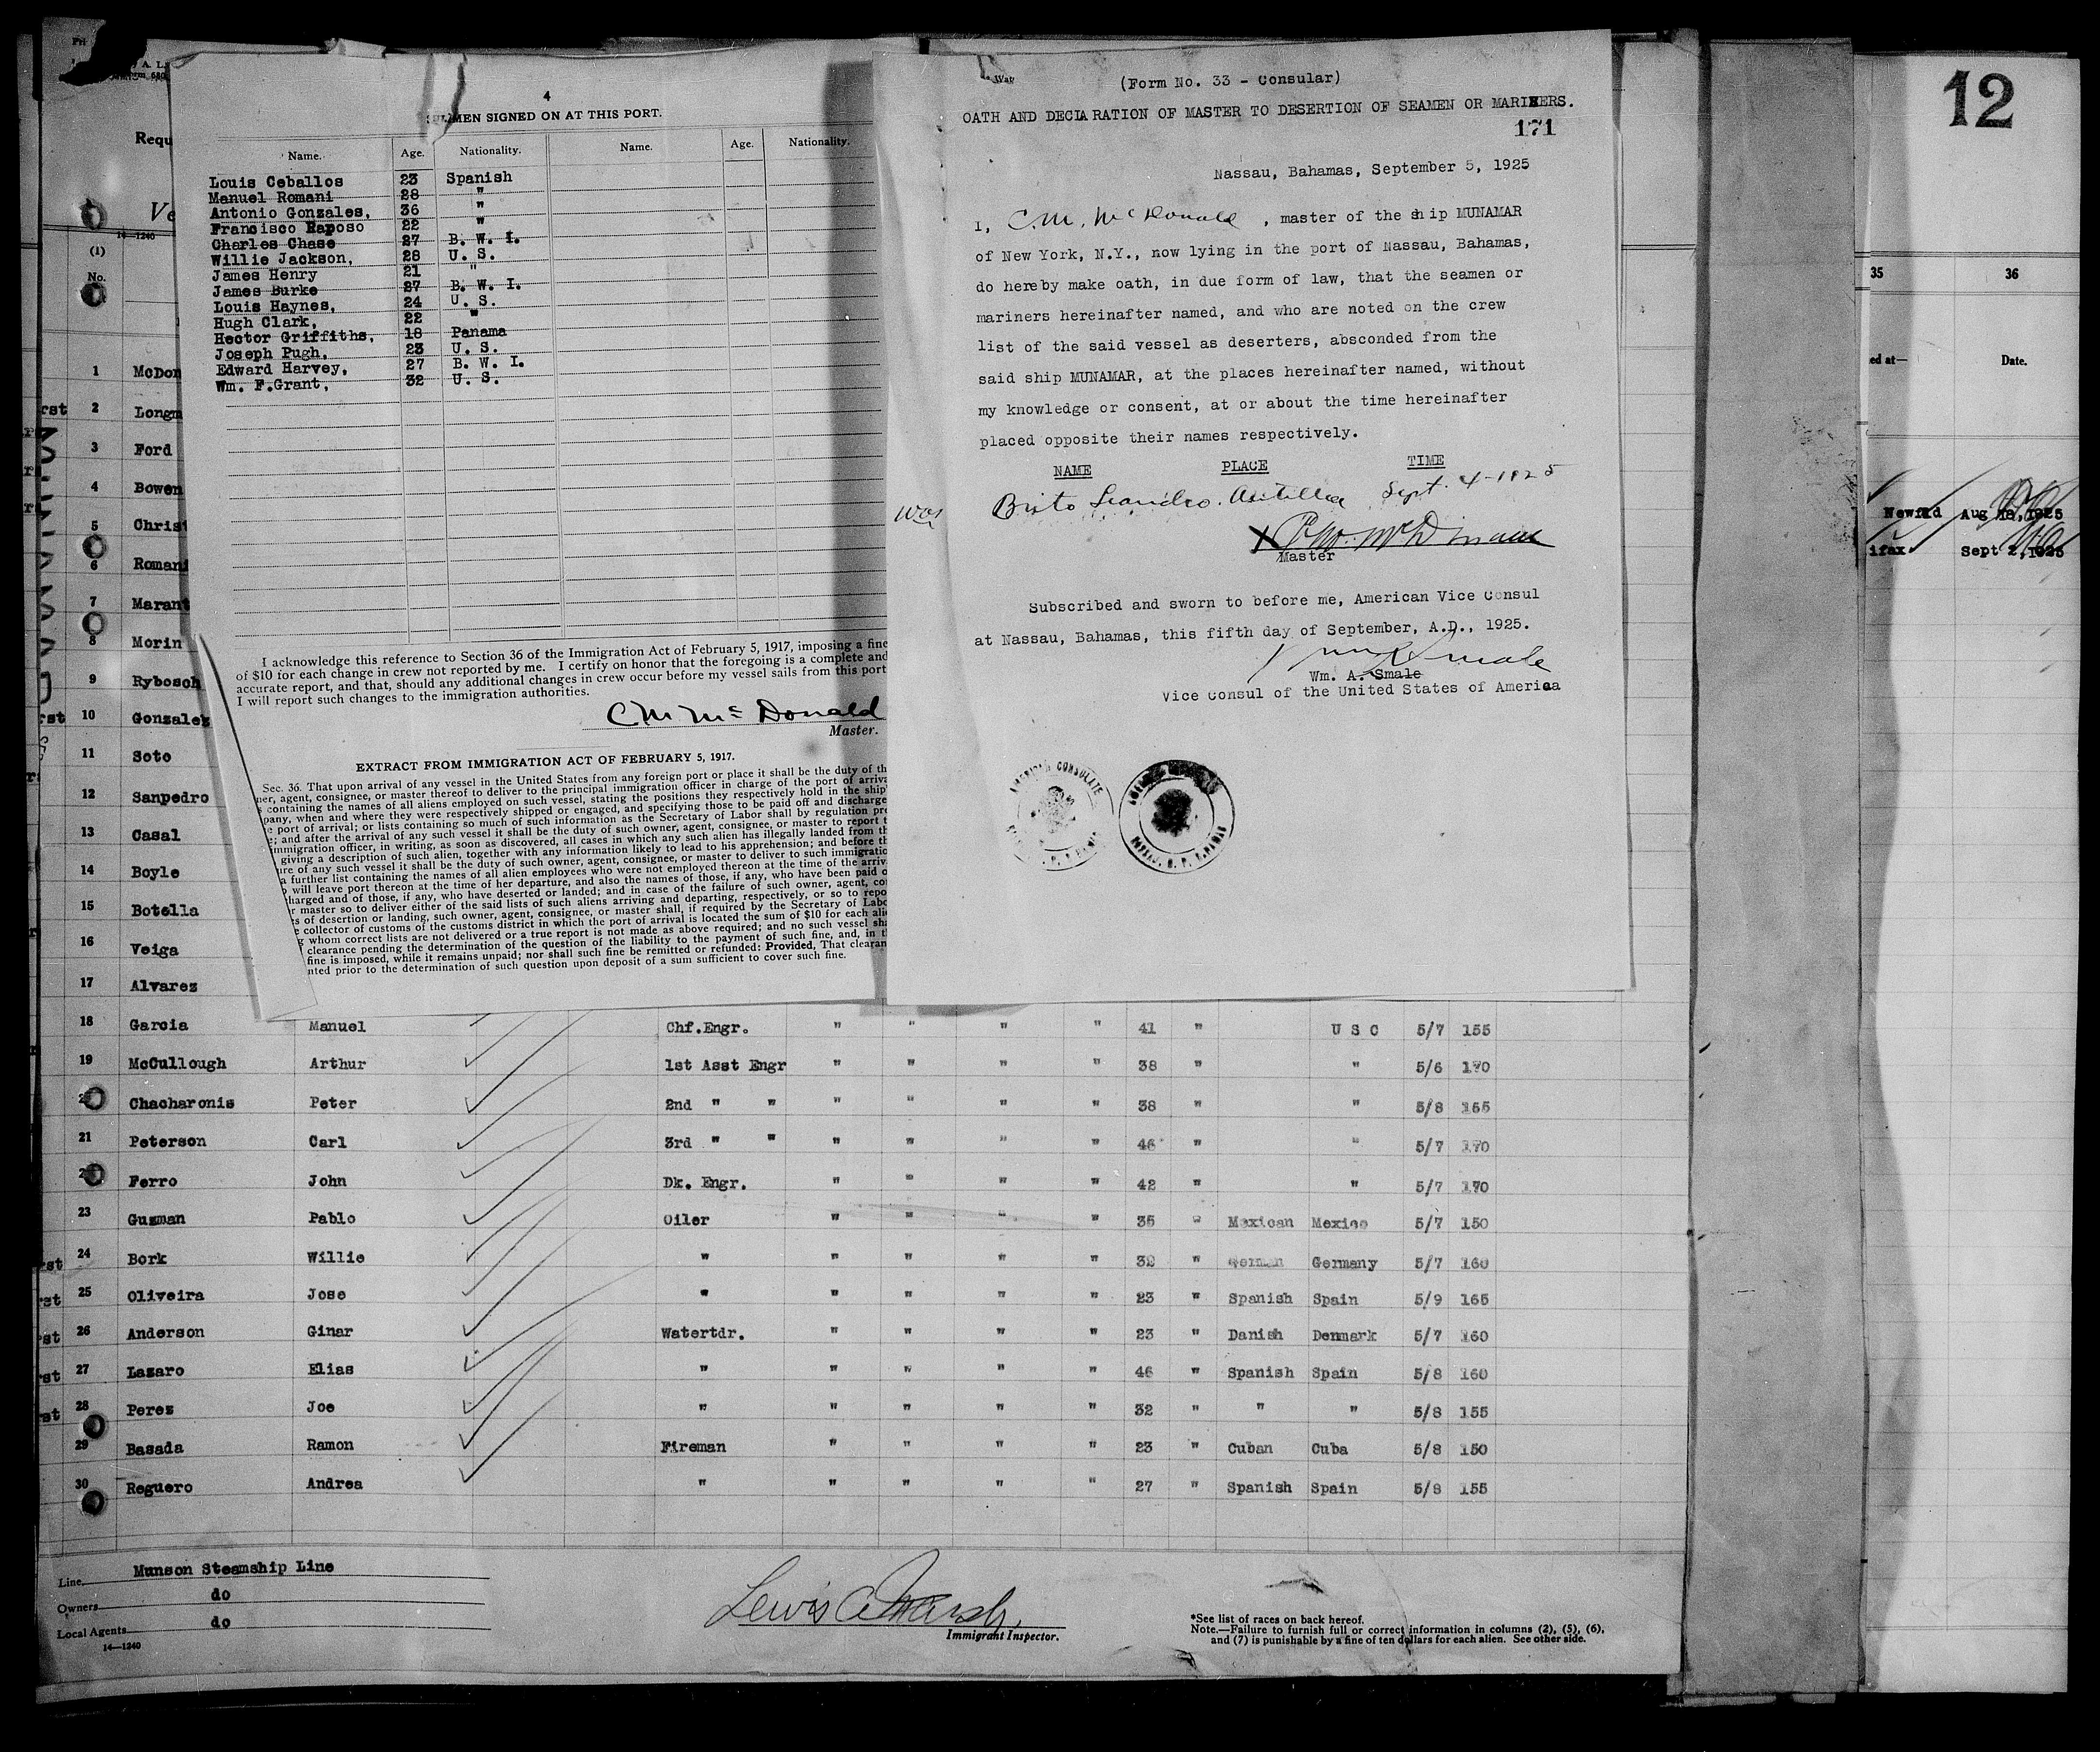 4
MEN SIGNED ON AT THIS PORT.
Name. Age. Nationality. Name. Age. Nationality.
Louis Ceballos 23 Spanish
Manuel Romani 28 "
Antonio Gonzales, 36 "
Francisco Raposo 22 "
Charles Chase 27 B. W. I.
Willie Jackson, 28 U. S.
James Henry 21 "
James Burke 27 B. W. I.
Louis Haynes, 24 U. S.
Hugh Clark, 22 "
Hector Griffiths, 18 Panama
Joseph Pugh, 23 U. S.
Edward Harvey, 27 B. W. I.
Wm. F.Grant, 32 U. S.
I acknowledge this reference to Section 36 of the Immigration Act of February 5, 1917, imposing a fine
of $10 for each change in crew not reported by me. I certify on honor that the foregoing is a complete and
accurate report, and that, should any additional changes in crew occur before my vessel sails from this port
I will report such changes to the immigration authorities.
C M McDonald
Master.
EXTRACT FROM IMMIGRATION ACT OF FEBRUARY 5, 1917.
Sec. 36. That upon arrival of any vessel in the United States from any foreign port or place it shall be the duty of th
ner, agent, consignee, or master thereof to deliver to the principal immigration officer in charge of the port of arriva
containing the names of all aliens employed on such vessel, stating the positions they respectively hold in the ship'
pany, when and where they were respectively shipped or engaged, and specifying those to be paid off and discharge
e port of arrival; or lists containing so much of such information as the Secretary of Labor shall by regulation pre
e; and after the arrival of any such vessel it shall be the duty of such owner, agent, consignee, or master to report t
mmigration officer, in writing, as soon as discovered, all cases in which any such alien has illegally landed from th
giving a description of such alien, together with any information likely to lead to his apprehension; and before th
ure of any such vessel it shall be the duty of such owner, agent, consignee, or master to deliver to such immigratio
a further list containing the names of all alien employees who were not employed thereon at the time of the arriv
will leave port thereon at the time of her departure, and also the names of those, if any, who have been paid o
harged and of those, if any, who have deserted or landed; and in case of the failure of such owner, agent, co
r master so to deliver either of the said lists of such aliens arriving and departing, respectively, or so to repo
s of desertion or landing, such owner, agent, consignee, or master shall, if required by the Secretary of Labo
e collector of customs of the customs district in which the port of arrival is located the sum of $10 for each ali
g whom correct lists are not delivered or a true report is not made as above required; and no such vessel sha
clearance pending the determination of the question of the liability to the payment of such fine, and, in t
fine is imposed, while it remains unpaid; nor shall such fine be remitted or refunded: Provided, That clearan
nted prior to the determination of such question upon deposit of a sum sufficient to cover such fine.
(Form No. 33 - Consular)
OATH AND DECLARATION OF MASTER TO DESERTION OF SEAMEN OR MARINERS.
171
Nassau, Bahamas, September 5, 1925
I, C. M. McDonald, master of the ship MUNAMAR
of New York, N.Y., now lying in the port of Nassau, Bahamas,
do hereby make oath, in due form of law, that the seamen or
mariners hereinafter named, and who are noted on the crew
list of the said vessel as deserters, absconded from the
said ship MUNAMAR, at the places hereinafter named, without
my knowledge or consent, at or about the time hereinafter
placed opposite their names respectively.
NAME PLACE TIME
Brito Leandro. Antilla Sept. 4-1925
X
Master
Subscribed and sworn to before me, American Vice Consul
at Nassau, Bahamas, this fifth day of September, A.D., 1925.
Wm. A. Smale
Vice Consul of the United States of America
AMERICAN CONSULATE
12
35 36
ed at— Date.
Newfld Aug 18, 1925
ifax Sept 2, 1925
Requ
Ve
14—1240
(1)
No.
1 McDon
2 Longm
3 Ford
4 Bowen
5 Christ
6 Romani
7 Marant
8 Morin
9 Rybosch
10 Gonzalez
11 Soto
12 Sanpedro
13 Casal
14 Boyle
15 Botella
16 Veiga
17 Alvarez
18 Garcia Manuel Chf.Engr. " " " " 41 " U S C 5/7 155
19 McCullough Arthur 1st Asst Engr " " " " 38 " " 5/6 170
Chacharonis Peter 2nd " " " " " " 38 " " 5/8 165
21 Peterson Carl 3rd " " " " " " 46 " " 5/7 170
Ferro John Dk. Engr. " " " " 42 " " 5/7 170
23 Guzman Pablo Oiler " " " " 35 " Mexican Mexico 5/7 150
24 Bork Willie " " " " " 32 " German Germany 5/7 160
25 Oliveira Jose " " " " " 23 " Spanish Spain 5/9 165
26 Anderson Ginar Watertdr. " " " " 23 " Danish Denmark 5/7 160
27 Lazaro Elias " " " " " 46 " Spanish Spain 5/8 160
28 Perez Joe " " " " " 32 " " " 5/8 155
29 Basada Ramon Fireman " " " " 23 " Cuban Cuba 5/8 150
30 Reguero Andrea " " " " " 27 " Spanish Spain 5/8 155
Line Munson Steamship Line
Owners do
Local Agents do
14—1240
Lewis
Immigrant Inspector.
*See list of races on back hereof.
Note.—Failure to furnish full or correct information in columns (2), (5), (6),
and (7) is punishable by a fine of ten dollars for each alien. See other side.